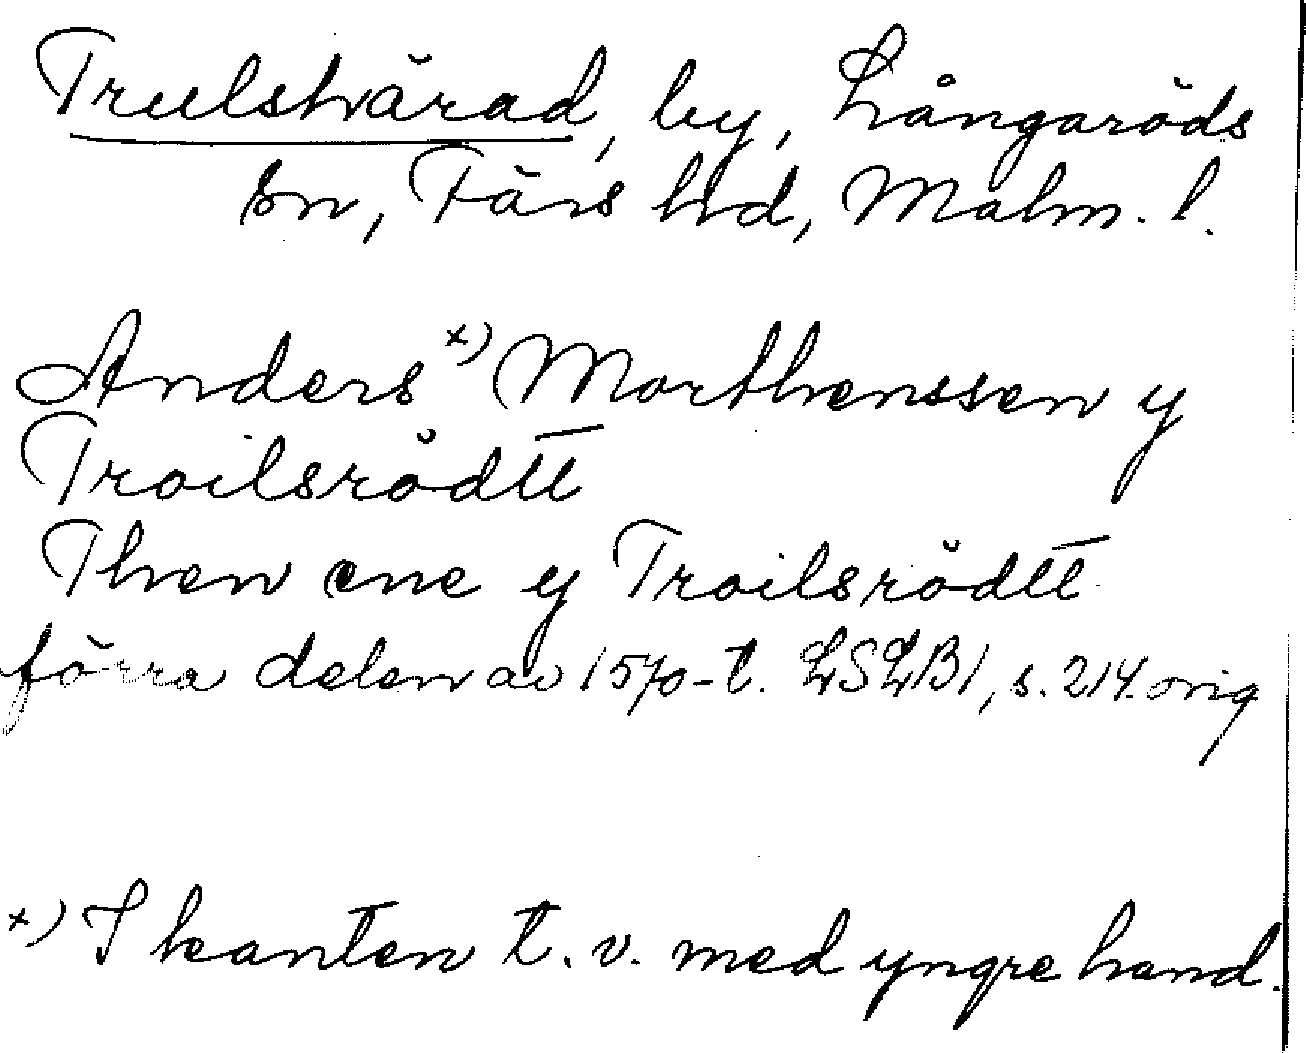 Trulshärad, by, Långaröds
sn, Färs hd, Malm. l.
Anders x) Morthenssen y
Troilsrödtt
Then ene y Troilsrödtt
förra delen av 1570-t. LSLB1, s. 214. orig
x) I kanten t. v. med yngre hand.